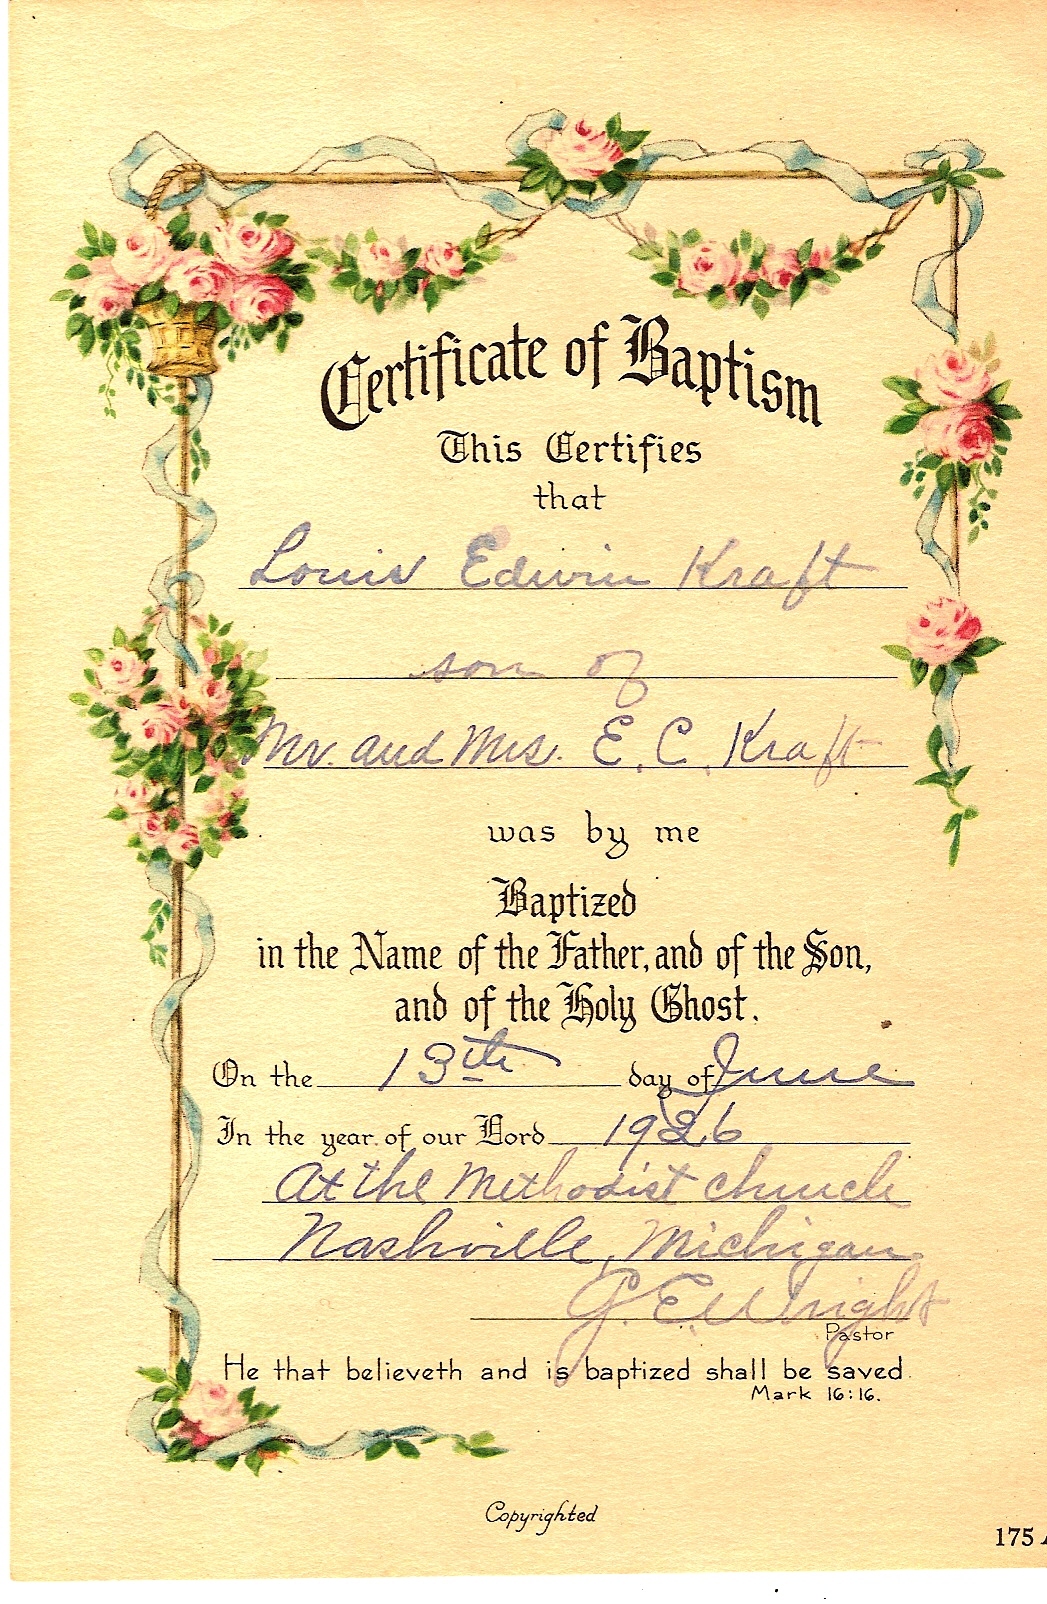 Certificate of Baptism
This Certifies
that
Louis Edwin Kraft
son of
Mr. and Mrs. E. C. Kraft
was by me
Baptized
in the Name of the Father, and of the Son,
and of the Holy Ghost.
On the 13th day of June
In the year of our Lord 1926
At the Methodist church
Nashville, Michigan
G. E. Wright
Pastor
He that believeth and is baptized shall be saved.
Mark 16:16.
Copyrighted
175